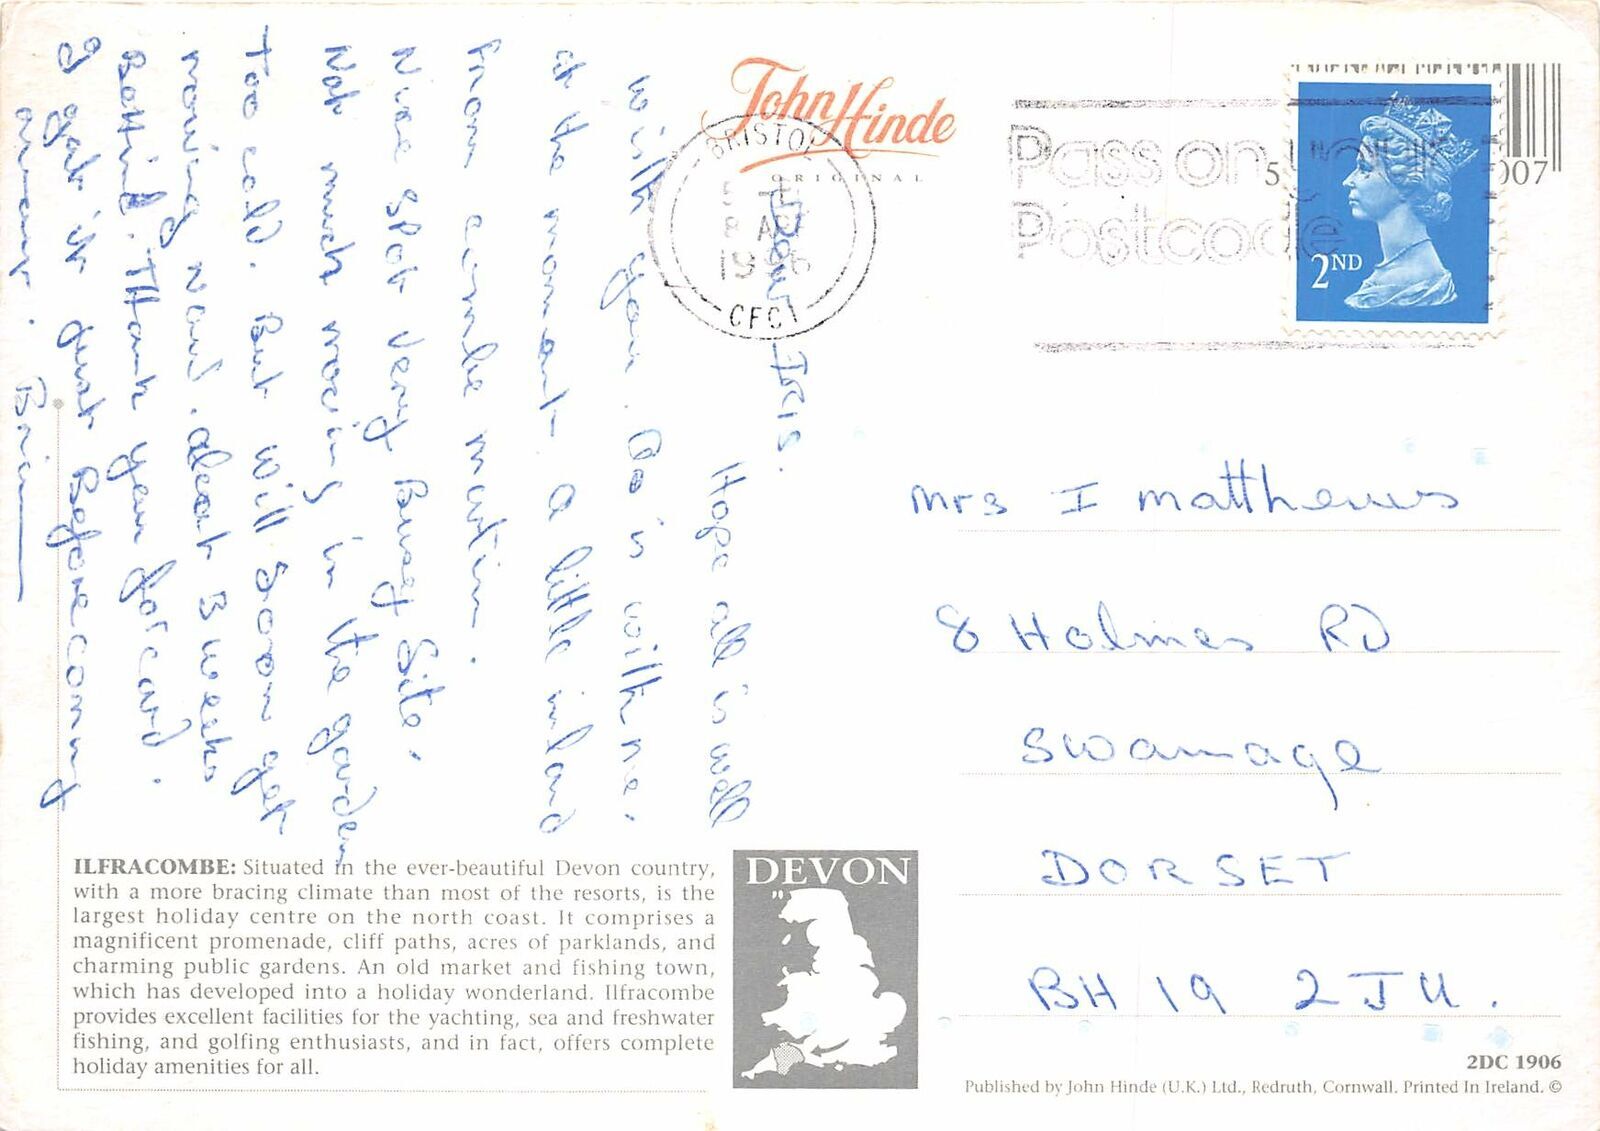 John Hinde
ORIGINAL
BRISTOL
CFC
Pass on your
Postcode
2ND
Dear IRIS.
Hope all is well
with you. As is with me.
at the moment. A little inland
from combe martin.
Nice spot very Busey Site.
Not much mooing in the garden
Too cold. But will soon get
moving now. about 3 weeks
Behind. Thank you for card.
I got it just Before coming
away. Brian
Mrs I Matthews
8 Holmes RD
Swanage
DORSET
BH 19 2JU.
ILFRACOMBE: Situated in the ever-beautiful Devon country,
with a more bracing climate than most of the resorts, is the
largest holiday centre on the north coast. It comprises a
magnificent promenade, cliff paths, acres of parklands, and
charming public gardens. An old market and fishing town,
which has developed into a holiday wonderland. Ilfracombe
provides excellent facilities for the yachting, sea and freshwater
fishing, and golfing enthusiasts, and in fact, offers complete
holiday amenities for all.
DEVON
2DC 1906
Published by John Hinde (U.K.) Ltd., Redruth, Cornwall. Printed In Ireland. ©